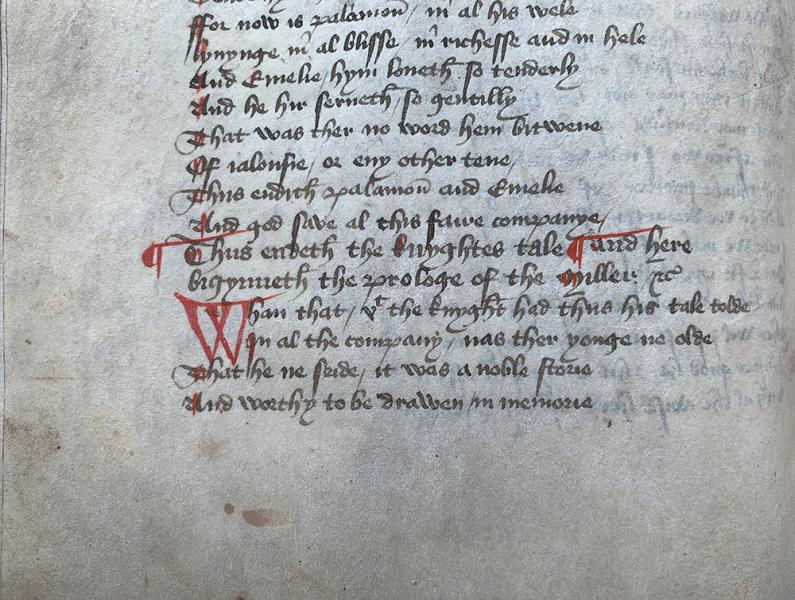 ffor now is palamoun / in al his wele
lyuynge in al blisse / in richesse and in hele
And Emelie / hym loueth so tenderly
And he hir serueth / so gentilly
That was ther no word hem bitwene
Of ialousie / or eny other tene /
Thus endith palamoun and Emelie
And god save al this faire companye /
¶ Thus endeth the knyghtes tale ¶ And here
bigynneth the prologe of the Miller · &c
Whan that / þt the knyght had thus his tale tolde
In al the company / nas ther yonge ne olde
That he ne seide / it was a noble storie
And worthy to be drawen / in memorie